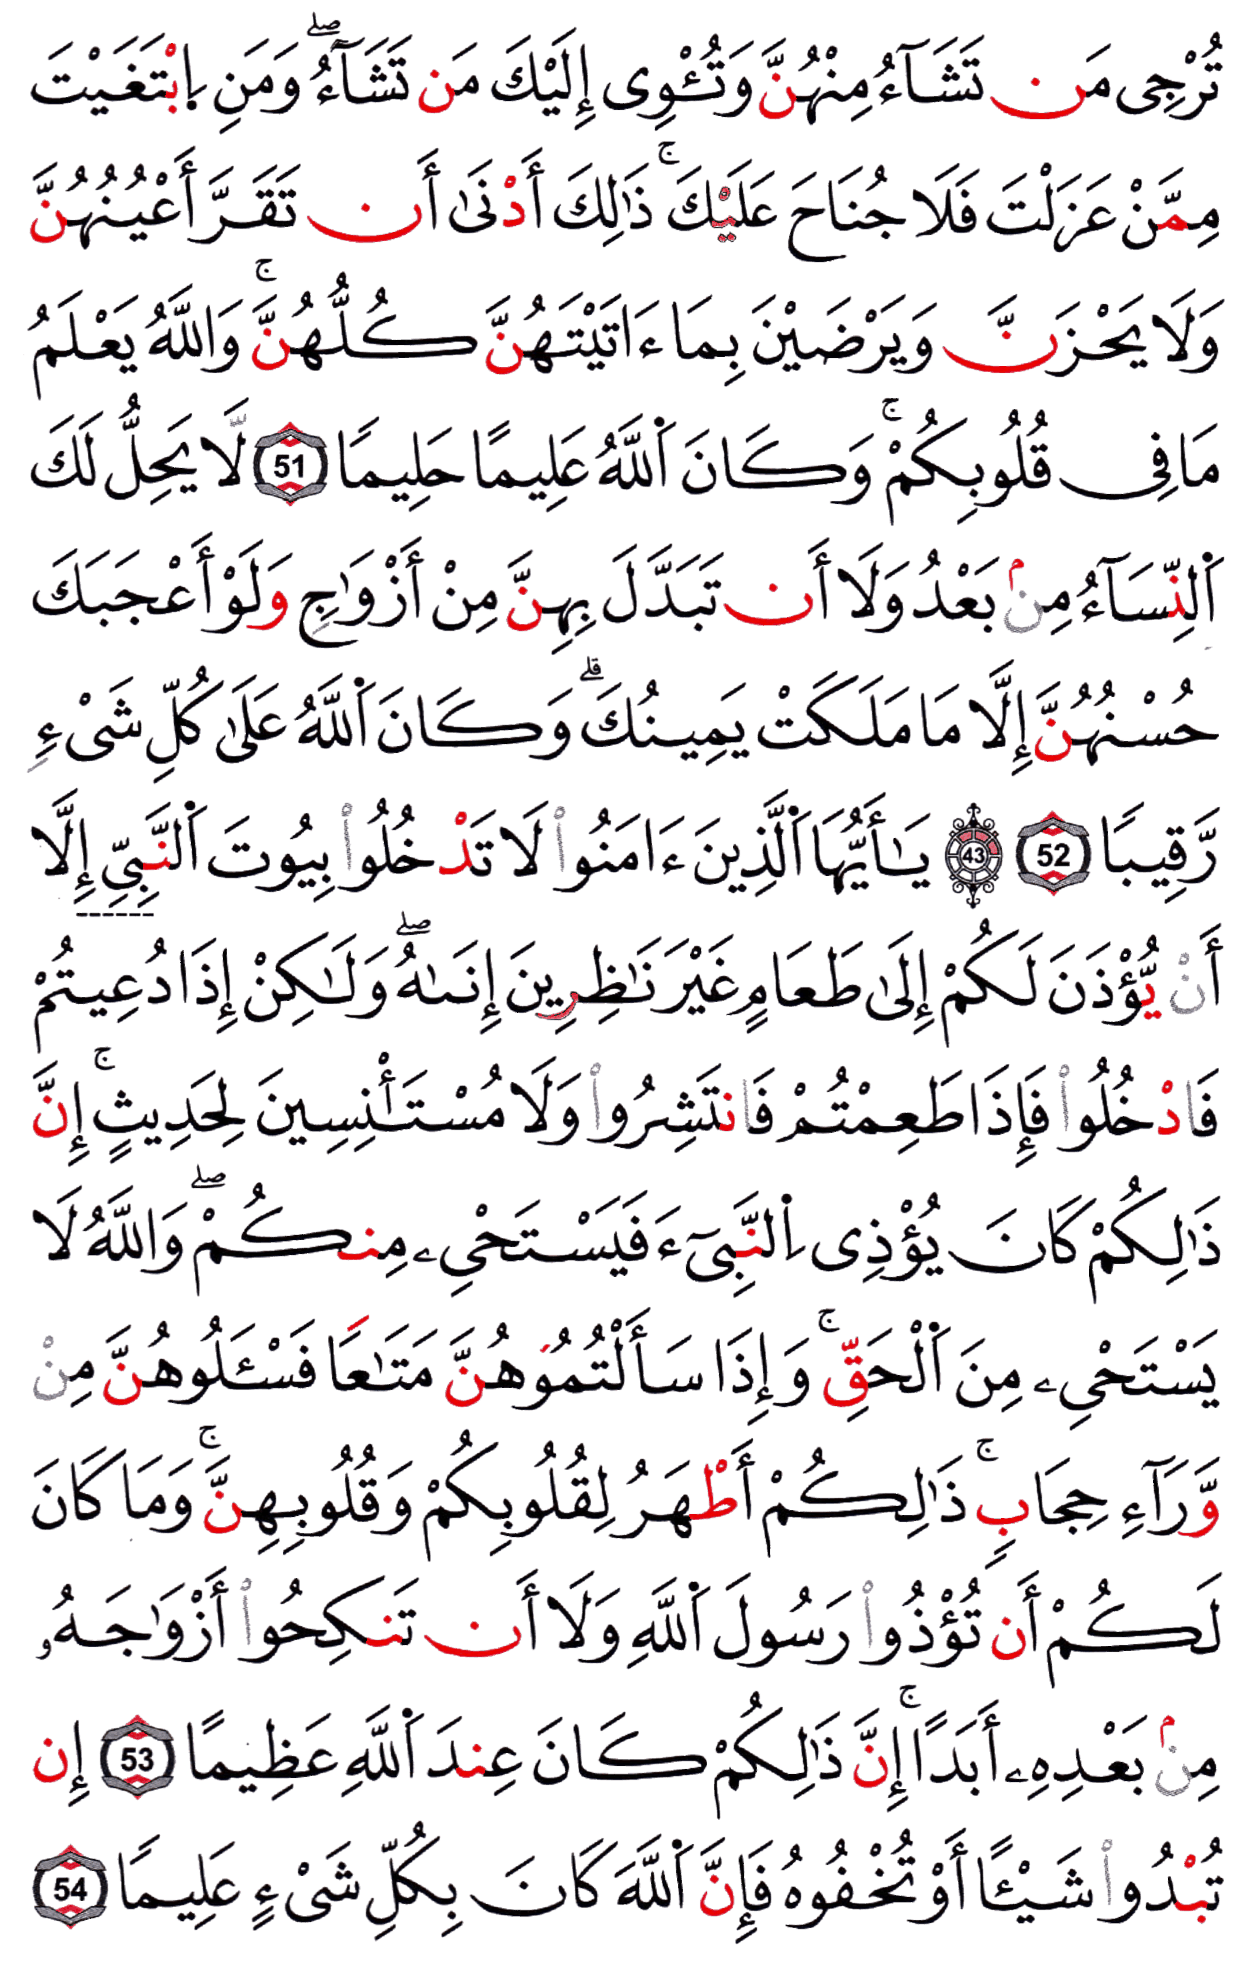 تُرْجِى مَن تَشَآءُ مِنْهُنَّ وَتُـْٔوِى إِلَيْكَ مَن تَشَآءُ ۖ وَمَنِ اِبْتَغَيْتَ
مِمَّنْ عَزَلْتَ فَلَا جُنَاحَ عَلَيْكَ ۚ ذَٰلِكَ أَدْنَىٰ أَن تَقَرَّ أَعْيُنُهُنَّ
وَلَا يَحْزَنَّ وَيَرْضَيْنَ بِمَا ءَاتَيْتَهُنَّ كُلُّهُنَّ ۚ وَاللَّهُ يَعْلَمُ
مَا فِى قُلُوبِكُمْ ۚ وَكَانَ اَللَّهُ عَلِيمًا حَلِيمًا 51 لَّا يَحِلُّ لَكَ
اَلنِّسَآءُ مِنۢ بَعْدُ وَلَا أَن تَبَدَّلَ بِهِنَّ مِنْ أَزْوَٰجٍ وَلَوْ أَعْجَبَكَ
حُسْنُهُنَّ إِلَّا مَا مَلَكَتْ يَمِينُكَ ۗ وَكَانَ اَللَّهُ عَلَىٰ كُلِّ شَىْءٍ
رَّقِيبًا 52 43 يَـٰأَيُّهَا اَلَّذِينَ ءَامَنُوا۟ لَا تَدْخُلُوا۟ بِيُوتَ اَلنَّبِىِّ إِلَّا
أَنْ يُّؤْذَنَ لَكُمْ إِلَىٰ طَعَامٍ غَيْرَ نَـٰظِرِينَ إِنَىٰهُ ۖ وَلَـٰكِنْ إِذَا دُعِيتُمْ
فَادْخُلُوا۟ فَإِذَا طَعِمْتُمْ فَانتَشِرُوا۟ وَلَا مُسْتَـْٔنِسِينَ لِحَدِيثٍ ۚ إِنَّ
ذَٰلِكُمْ كَانَ يُؤْذِى اِلنَّبِىٓءَ فَيَسْتَحْىِۦ مِنكُمْ ۖ وَاللَّهُ لَا
يَسْتَحْىِۦ مِنَ اَلْحَقِّ ۚ وَإِذَا سَأَلْتُمُوهُنَّ مَتَـٰعًا فَسْـَٔلُوهُنَّ مِنْ
وَّرَآءِ حِجَابٍ ۚ ذَٰلِكُمْ أَطْهَرُ لِقُلُوبِكُمْ وَقُلُوبِهِنَّ ۚ وَمَا كَانَ
لَكُمْ أَن تُؤْذُوا۟ رَسُولَ اَللَّهِ وَلَا أَن تَنكِحُوا۟ أَزْوَٰجَهُۥ
مِنۢ بَعْدِهِۦ أَبَدًا ۚ إِنَّ ذَٰلِكُمْ كَانَ عِندَ اَللَّهِ عَظِيمًا 53 إِن
تُبْدُوا۟ شَيْـًٔا أَوْ تُخْفُوهُ فَإِنَّ اَللَّهَ كَانَ بِكُلِّ شَىْءٍ عَلِيمًا 54